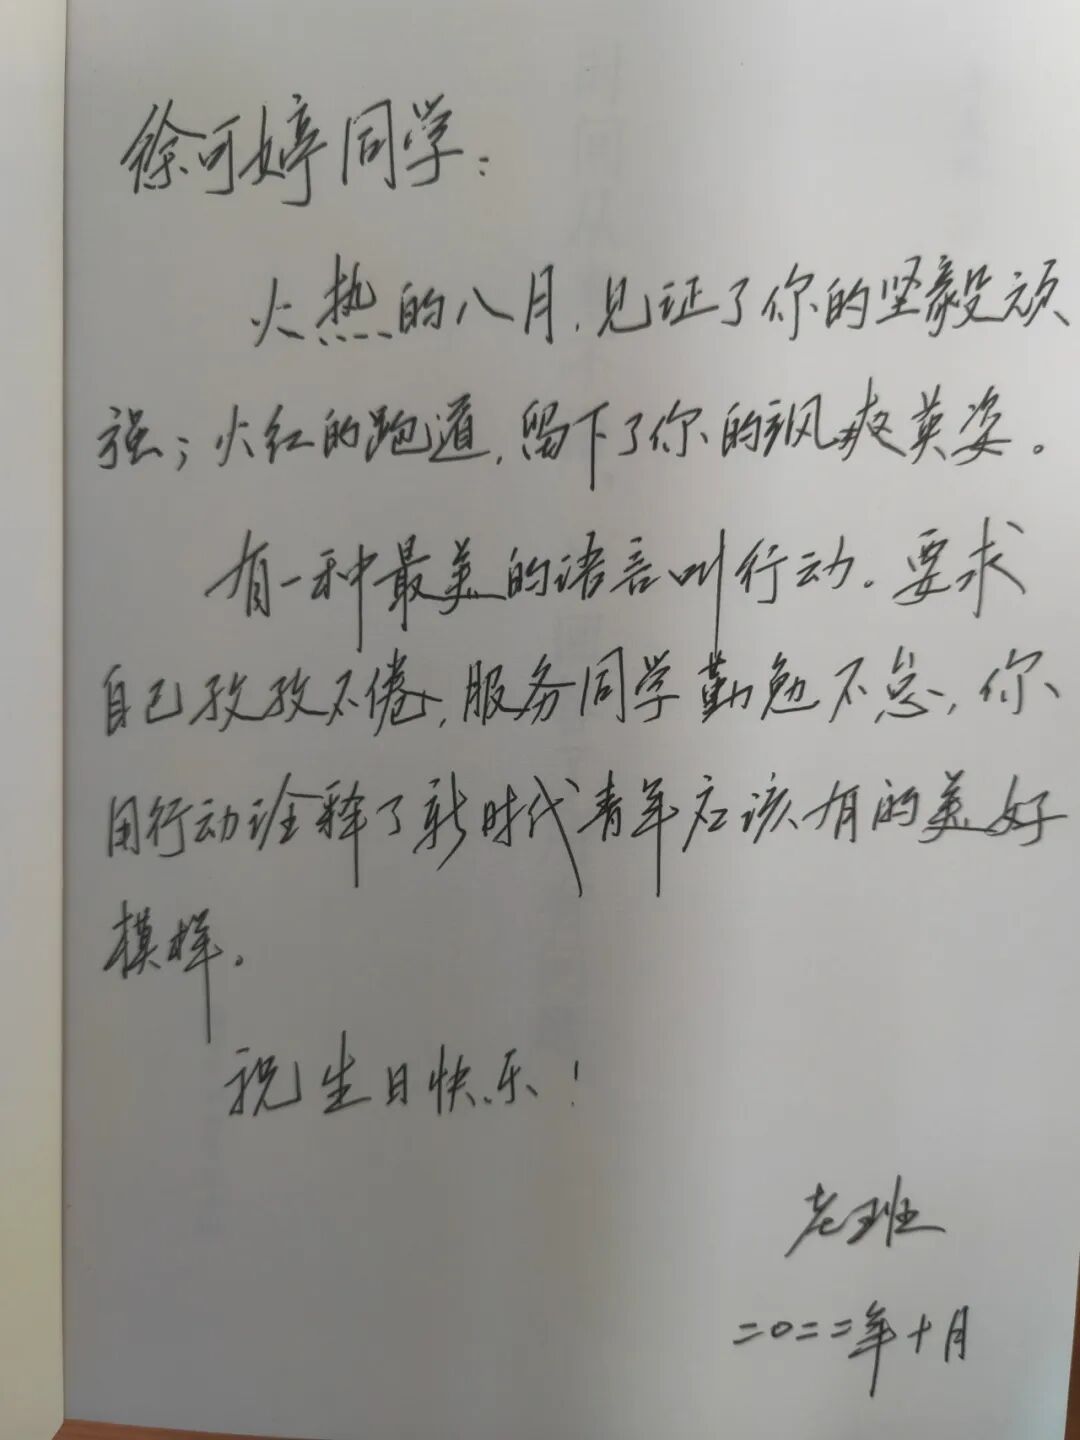 徐可婷同学：
火热的八月，见证了你的坚毅顽
强；火红的跑道，留下了你的飒爽英姿。
有一种最美的语言叫行动。要求
自己孜孜不倦，服务同学勤勉不怠，你
用行动诠释了新时代青年应该有的美好
模样。
祝生日快乐！
老班
二〇二二年十月